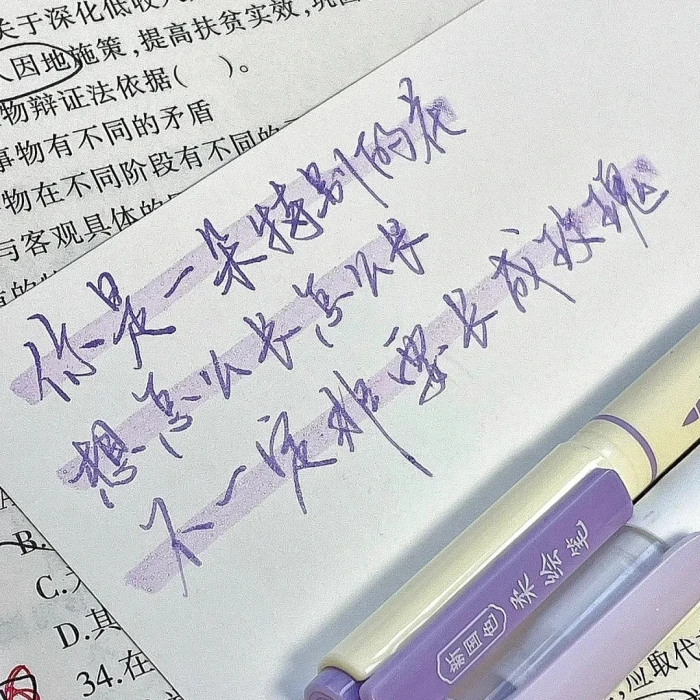 关于深化低收入
因地施策，提高扶贫实效，巩固
物辩证法依据(    )。
事物有不同的矛盾
物在不同阶段有不同的
与客观具体的
你是一朵特别的花
想怎么长怎么长
不一定非要长成玫瑰
B.
C.
D.其
34.在
新国色 柔绘笔
应取代